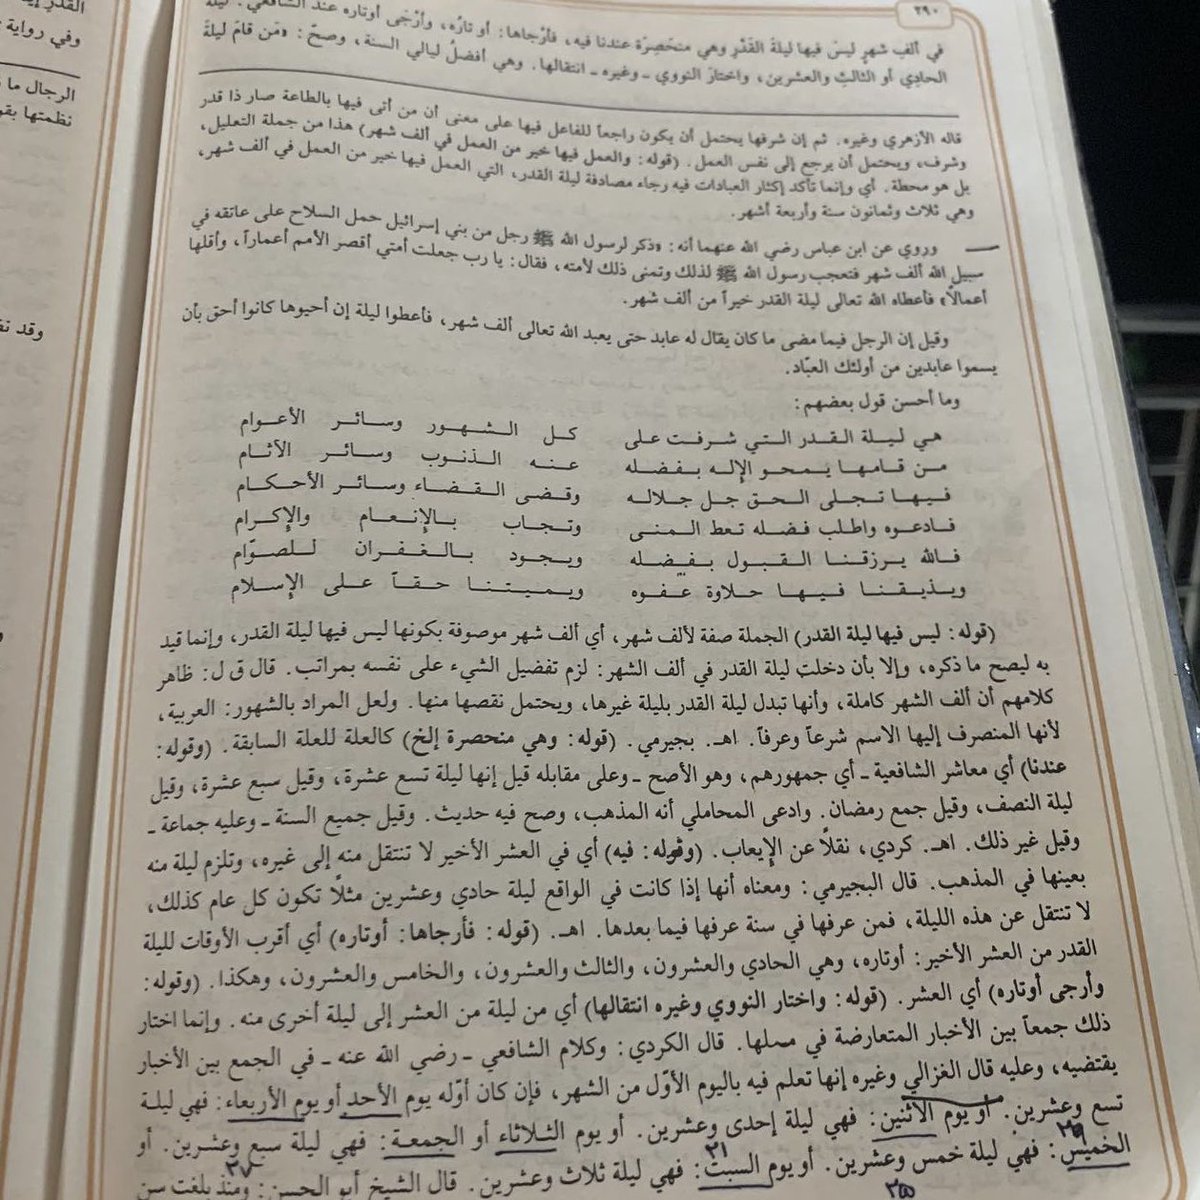 ٢٩٠
في ألفِ شهرٍ ليسَ فيها ليلةُ القَدْرِ وهي منحَصِرَة عندنا فيه، فأرْجاها: أو تارُه، وأرْجَى أوتاره عند الشافعي: ليلة
الحادِي أو الثالثِ والعشرين، واختارَ النووي ـ وغيره ـ انتقالها. وهي أفضلُ ليالي السنة، وصحّ: «مَن قامَ ليلةَ
قاله الأزهري وغيره. ثم إن شرفها يحتمل أن يكون راجعاً للفاعل فيها على معنى أن من أتى فيها بالطاعة صار ذا قدر
وشرف، ويحتمل أن يرجع إلى نفس العمل. (قوله: والعمل فيها خير من العمل في ألف شهر) هذا من جملة التعليل،
بل هو محطة. أي وإنما تأكد إكثار العبادات فيه رجاء مصادفة ليلة القدر، التي العمل فيها خير من العمل في ألف شهر،
وهي ثلاث وثمانون سنة وأربعة أشهر.
وروي عن ابن عباس رضي الله عنهما أنه: «ذكر لرسول الله ﷺ رجل من بني إسرائيل حمل السلاح على عاتقه في
سبيل الله ألف شهر فتعجب رسول الله ﷺ لذلك وتمنى ذلك لأمته، فقال: يا رب جعلت أمتي أقصر الأمم أعماراً، وأقلها
أعمالاً» فأعطاه الله تعالى ليلة القدر خيراً من ألف شهر.
وقيل إن الرجل فيما مضى ما كان يقال له عابد حتى يعبد الله تعالى ألف شهر، فأعطوا ليلة إن أحيوها كانوا أحق بأن
يسموا عابدين من أولئك العبّاد.
وما أحسن قول بعضهم:
هي ليلة القدر التي شرفت على كل الشهور وسائر الأعوام
من قامها يمحو الإله بفضله عنه الذنوب وسائر الآثام
فيها تجلى الحق جل جلاله وقضى القضاء وسائر الأحكام
فادعوه واطلب فضله تعط المنى وتجاب بالإنعام والإكرام
فالله يرزقنا القبول بفضله ويجود بالغفران للصوّام
ويذيقنا فيها حلاوة عفوه ويميتنا حقاً على الإسلام
(قوله: ليس فيها ليلة القدر) الجملة صفة لألف شهر، أي ألف شهر موصوفة بكونها ليس فيها ليلة القدر، وإنما قيد
به ليصح ما ذكره، وإلا بأن دخلت ليلة القدر في ألف الشهر: لزم تفضيل الشيء على نفسه بمراتب. قال ق ل: ظاهر
كلامهم أن ألف الشهر كاملة، وأنها تبدل ليلة القدر بليلة غيرها، ويحتمل نقصها منها. ولعل المراد بالشهور: العربية،
لأنها المنصرف إليها الاسم شرعاً وعرفاً. اهـ. بجيرمي. (قوله: وهي منحصرة إلخ) كالعلة للعلة السابقة. (وقوله:
عندنا) أي معاشر الشافعية ـ أي جمهورهم، وهو الأصح ـ وعلى مقابله قيل إنها ليلة تسع عشرة، وقيل سبع عشرة، وقيل
ليلة النصف، وقيل جمع رمضان. وادعى المحاملي أنه المذهب، وصح فيه حديث. وقيل جميع السنة ـ وعليه جماعة ـ
وقيل غير ذلك. اهـ. كردي، نقلاً عن الإيعاب. (وقوله: فيه) أي في العشر الأخير لا تنتقل منه إلى غيره، وتلزم ليلة منه
بعينها في المذهب. قال البجيرمي: ومعناه أنها إذا كانت في الواقع ليلة حادي وعشرين مثلاً تكون كل عام كذلك،
لا تنتقل عن هذه الليلة، فمن عرفها في سنة عرفها فيما بعدها. اهـ. (قوله: فأرجاها: أوتاره) أي أقرب الأوقات لليلة
القدر من العشر الأخير: أوتاره، وهي الحادي والعشرون، والثالث والعشرون، والخامس والعشرون، وهكذا. (وقوله:
وأرجى أوتاره) أي العشر. (قوله: واختار النووي وغيره انتقالها) أي من ليلة من العشر إلى ليلة أخرى منه. وإنما اختار
ذلك جمعاً بين الأخبار المتعارضة في محلها. قال الكردي: وكلام الشافعي ـ رضي الله عنه ـ في الجمع بين الأخبار
يقتضيه، وعليه قال الغزالي وغيره إنها تعلم فيه باليوم الأوّل من الشهر، فإن كان أوّله يوم الأحد أو يوم الأربعاء: فهي ليلة
تسع وعشرين. أو يوم الاثنين: فهي ليلة إحدى وعشرين. أو يوم الثلاثاء أو الجمعة: فهي ليلة سبع وعشرين. أو
٢٩ ٢١ ٢٧
الخميس: فهي ليلة خمس وعشرين. أو يوم السبت: فهي ليلة ثلاث وعشرين. قال الشيخ أبو الحسن: ومنذ بلغت سن
٢٥
القدر
وفي رواية
الرجال ما
نظمتها بقو
وقد نف